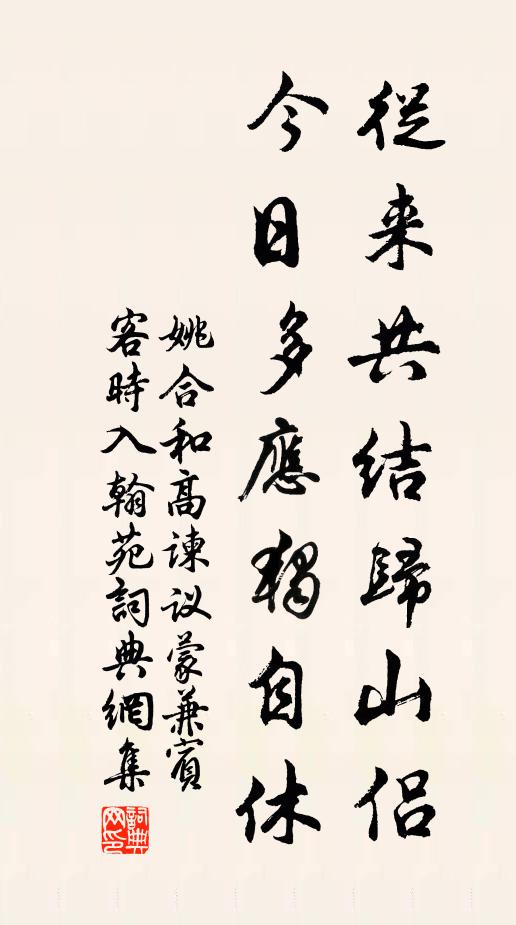 從来共结歸山侣
今日多應獨自休
姚合和高諫议蒙兼賓
客時入翰苑詞典網集
詞典
网印